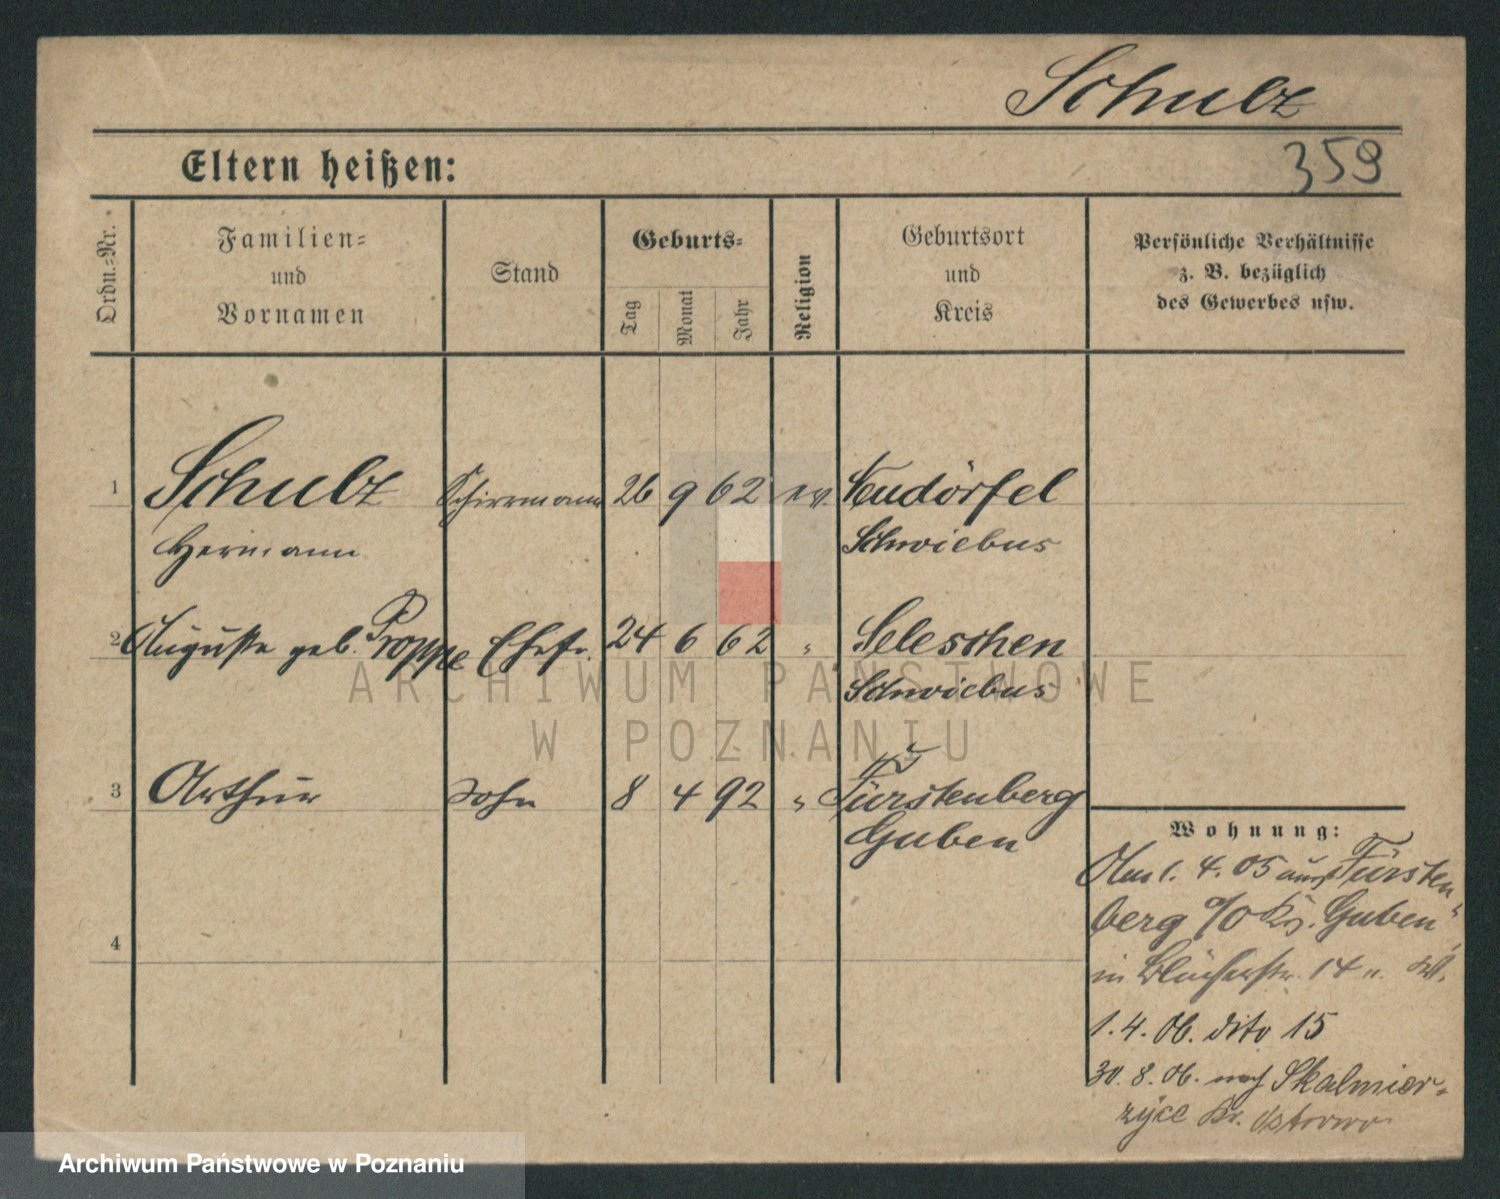 Schulz
359
Eltern heißen:
Ordn.-Nr.
Familien-
und
Vornamen
Stand
Geburts-
Tag
Monat
Jahr
Religion
Geburtsort
und
Kreis
Persönliche Verhältnisse
z. B. bezüglich
des Gewerbes usw.
1 Schulz Schirrmann 26 9 62 ev. Neudörfel
Hermann Schwiebus
2 Auguste geb. Proppe Ehefr. 24 6 62 " Seleschen
Schwiebus
3 Arthur Sohn 8 4 92 " Fürstenberg
Guben
Wohnung:
Am 1. 4. 05 aus Fürsten-
berg a/O Kr. Guben
in Blücherstr. 14 u.
4
1. 4. 06. dito 15
30. 8. 06. nach Skalmier-
zyce Kr. Ostrowo
ARCHIWUM PAŃSTWOWE
W POZNANIU
Archiwum Państwowe w Poznaniu